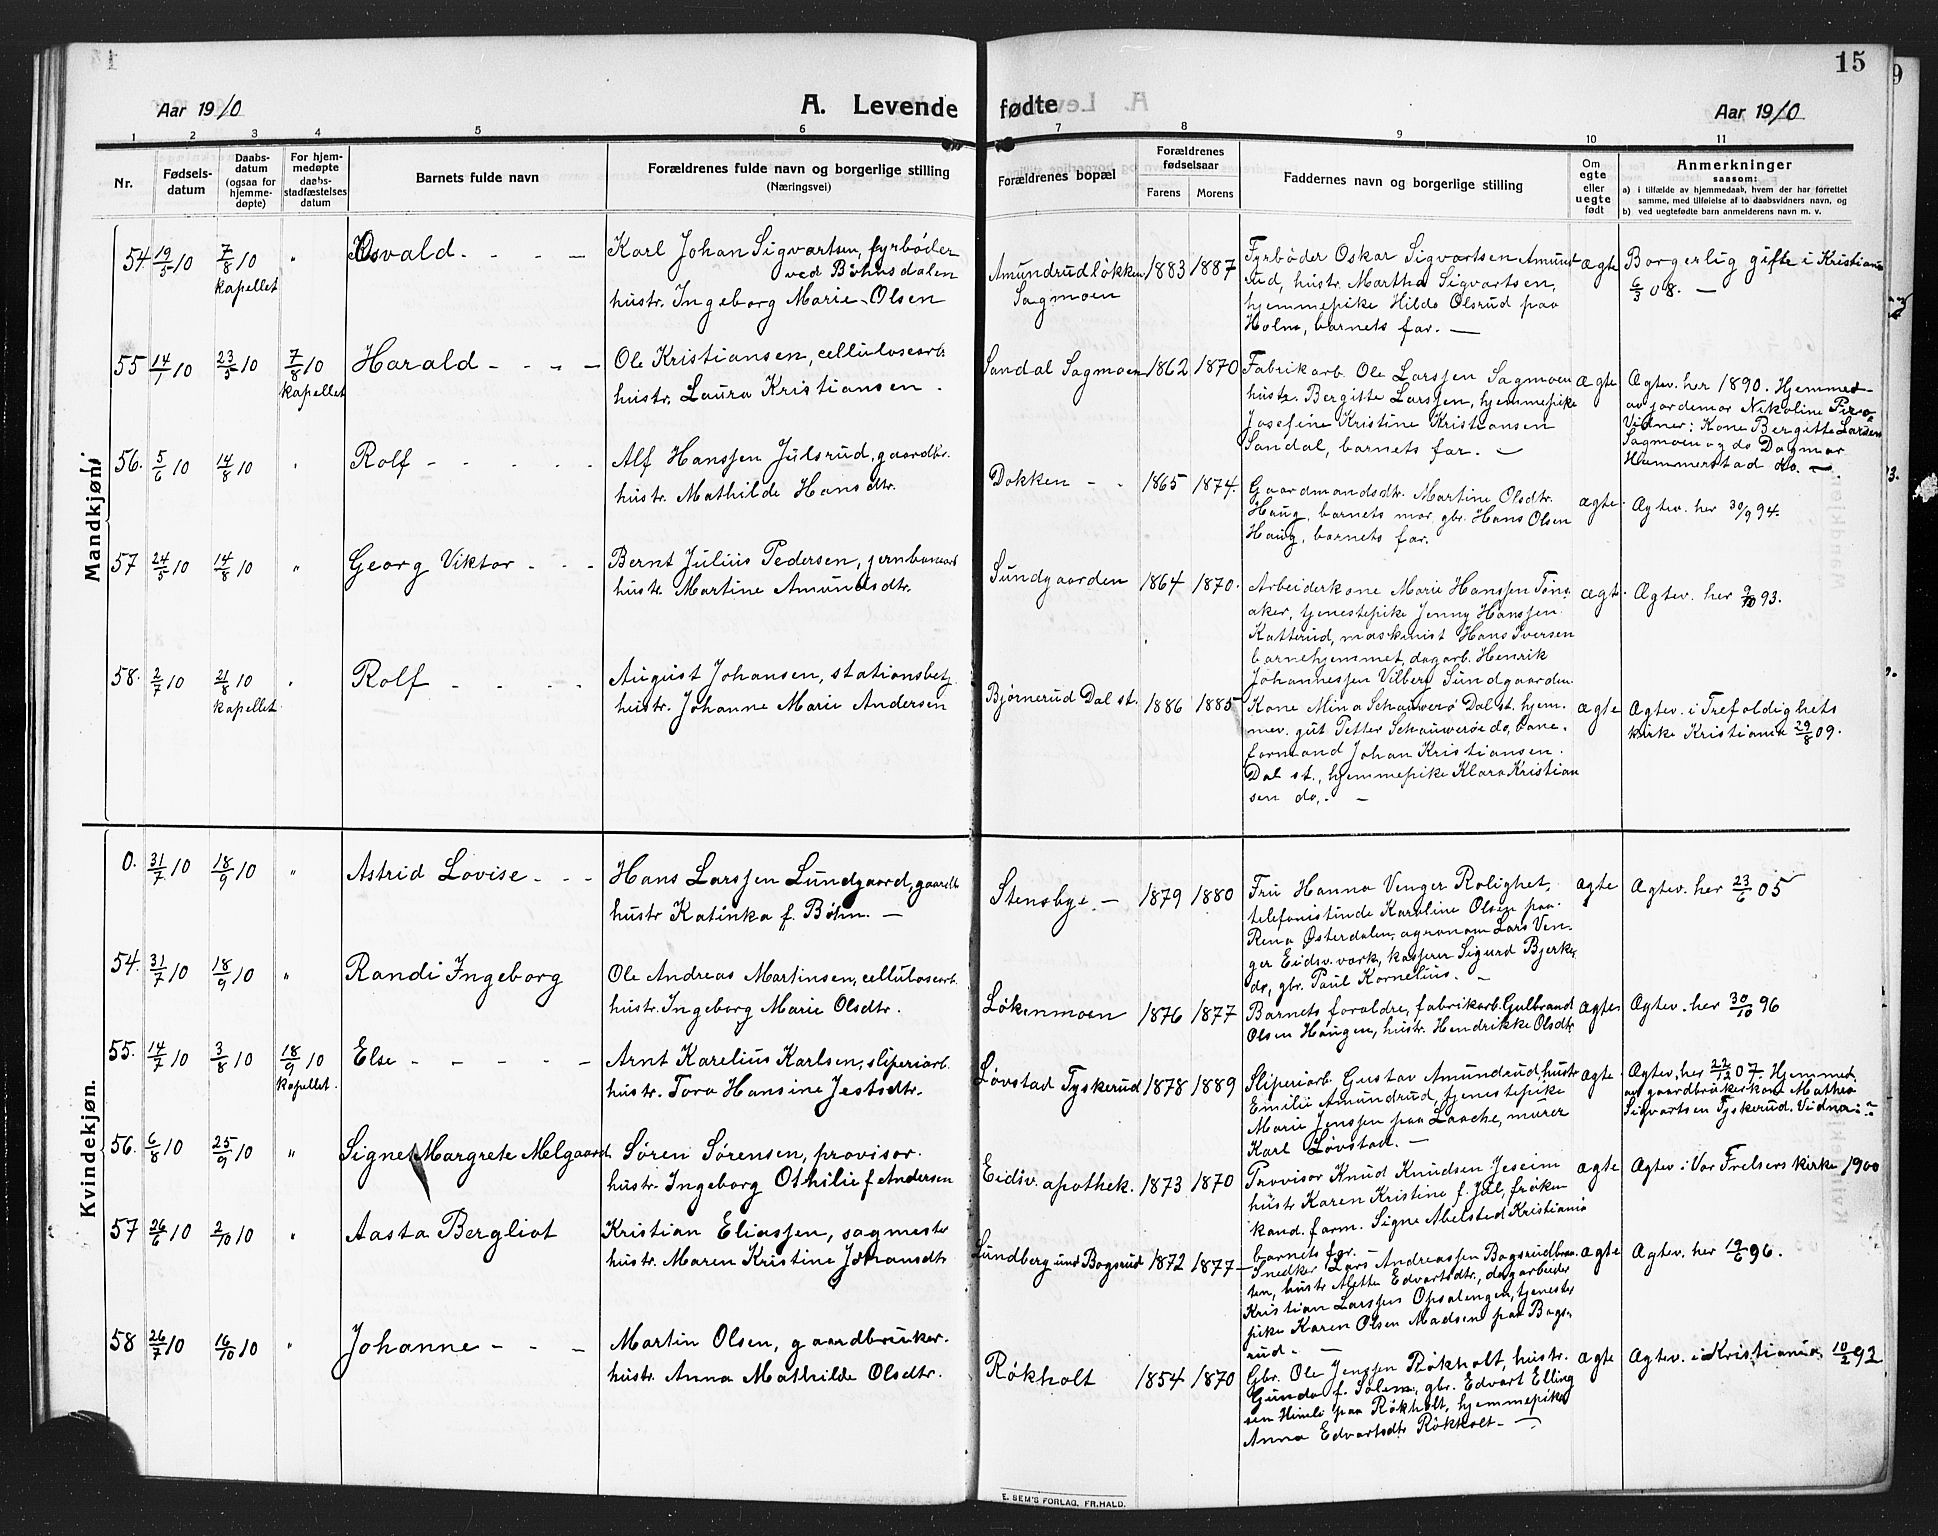 15
Aar 1910
A. Levende fødte
Aar 1910
1 2 3 4 5 6 7 8 9 10 11
Nr.
Fødsels-
datum
Daabs-
datum
(ogsaa for
hjemme-
døpte)
For hjem-
medøpte
daabs-
stadfæstelses
datum
Barnets fulde navn
Forældrenes fulde navn og borgerlige stilling
(Næringsvei)
Forældrenes bopæl
Forældrenes
fødselsaar
Farens Morens
Faddernes navn og borgerlige stilling
Om
egte
eller
uegte
født
Anmerkninger
saasom:
a) i tilfælde av hjemmedaab, hvem der har forrettet
samme, med tilføielse af to daabsvidners navn, og
b) ved uegtefødte barn anmelderens navn m. v.
Mandkjøn:
54 19/5 10 7/8 10 " Osvald - - -
kapellet
Karl Johan Sigvartsen, fyrbøder
ved Bøhnsdalen
hustr. Ingeborg Marie Olsen
Amundrudløkken
Sagmoen
1883 1887
Fyrbøder Oskar Sigvartsen Amund-
rud, hustr. Martha Sigvartsen,
hjemmepike Hilda Olsrud paa
Holm, barnets far. —
ægte
Borgerlig gifte i Kristiania
6/3 08. —
55 14/1 10 23/5 10 7/8 10 Harald - - -
kapellet
Ole Kristiansen, cellulosearb.
hustr. Laura Kristiansen.
Sandal Sagmoen 1862 1870
Fabrikarb. Ole Larssen Sagmoen
hustr. Bergitte Larssen, hjemmepike
Josefine Kristine Kristiansen
Sandal, barnets far. —
ægte
Ægtev. her 1890. Hjemmed.
av jordemor Nikoline Piro
Vidner: Kone Bergitte Larsen
Sagmoen og do Dagmar
Hammerstad do. —
56. 5/6 10 14/8 10 " Rolf - - - -
Alf Hanssen Julsrud, gaardbr.
hustr. Mathilde Hansdtr.
Dokken - - 1865 1874.
Gaardmandsdtr. Martine Olsdtr.
Haug, barnets mor, gbr. Hans Olsen
Haug, barnets far.
ægte.
Ægtev. her 30/9 94.
57 24/5 10 14/8 10 " Georg Viktor - - -
Bernt Julius Pedersen, jernbanearb
hustr. Martine Amundsdtr.
Sundgaarden 1864 1870.
Arbeiderkone Marie Hanssen Tøns-
aker, tjenestepike Jenny Hanssen
Katterud, maskinist Hans Iversen
barnehjemmet, dagarb. Henrik
Johannessen Vilberg Sundgaarden
ægte.
Ægtev. her 9/10 93.
58. 2/7 10 21/8 10 " Rolf - - - -
kapellet
August Johansen, stationsbetj.
hustr. Johanne Marie Andersen
Bjørnerud Dal st. 1886 1885
Kone Mina Schauwerø Dal st. hjem-
mev. gut Petter Schauwerøe do, bane-
formand Johan Kristiansen
Dal st., hjemmepike Klara Kristian
sen do. —
ægte
Ægtev. i Trefoldighets
kirke Kristiania 29/8 09.
Kvindekjøn.
0. 31/7 10 18/9 10 " Astrid Lovise - - -
Hans Larssen Lundgaard, gaardb.
hustr Katinka f. Bøhn. —
Stensbye. — 1879 1880
Fru Hanna Venger Rolighet,
telefonistinde Karoline Olsen paa
Rena Østerdalen, agronom Lars Ven-
ger Eidsv. verk, kasserer Sigurd Bjerke
do, gbr. Paul Kornelius. —
ægte
Ægtev. her 23/6 05
54. 31/7 10 18/9 10 " Randi Ingeborg
Ole Andreas Martinsen, cellulosearb.
hustr. Ingeborg Marie Olsdtr.
Løkenmoen 1876 1877
Barnets foraldre, fabrikarb. Gulbrand
Olsen Haugen, hustr. Hendrikke Olsdtr
ægte
Ægtev. her 30/10 96
55. 14/7 10 3/8 10 18/9 10 Else - - - -
kapellet.
Arnt Karelius Karlsen, sliperiarb.
hustr. Tora Hansine Jestsdtr.
Løvstad Tyskerud 1878 1889
Sliperiarb. Gustav Amundrud, hustr
Emilie Amundrud, tjenestepike
Marie Jenssen paa Laache, murer
Karl Løvstad. —
ægte
Ægtev. her 22/12 07. Hjemmed.
av gaardbrukerkone Mathea
Sigvartsen Tyskerud. Vidna: ?
56. 6/8 10 25/9 10 " Signe Margrete Melgaard
Søren Sørensen, provisor.
hustr. Ingeborg Othilie f. Andersen
Eidsv. apothek. 1873 1870
Provisor Knud Knudsen Jeseim
hustr Karen Kristine f. Jul, frøken
kand. farm. Signe Abelsted Kristiania
barnets far. —
ægte
Ægtev. i Vor Frelsers kirke 1900
57 26/6 10 2/10 10 " Aasta Bergliot
Kristian Eliassen, sagmester
hustr. Maren Kristine Johansdtr
Lundberg und. Bagsrud 1872 1877
Snedker Lars Andreassen Bagsrudbraa-
ten, hustr Alette Edvartsdtr., dagarbeider
Kristian Larssen Opsalengen, tjeneste-
pike Karen Olsen Madsen paa Bags-
rud. —
ægte
Ægtev. her 19/6 96.
58 26/7 10 16/10 10 " Johanne - - -
Martin Olsen, gaardbruker.
hustr. Anna Mathilde Olsdtr.
Røkholt 1854 1870
Gbr. Ole Jenssen Røkholt, hustr.
Gunda f. Solem, gbr. Edvart Elling
sen Himle paa Røkholt, hjemmepike
Anna Edvartsdtr Røkholt. —
ægte
Ægtev. i Kristiania 10/2 92
E. SEM'S FORLAG, FR.HALD.